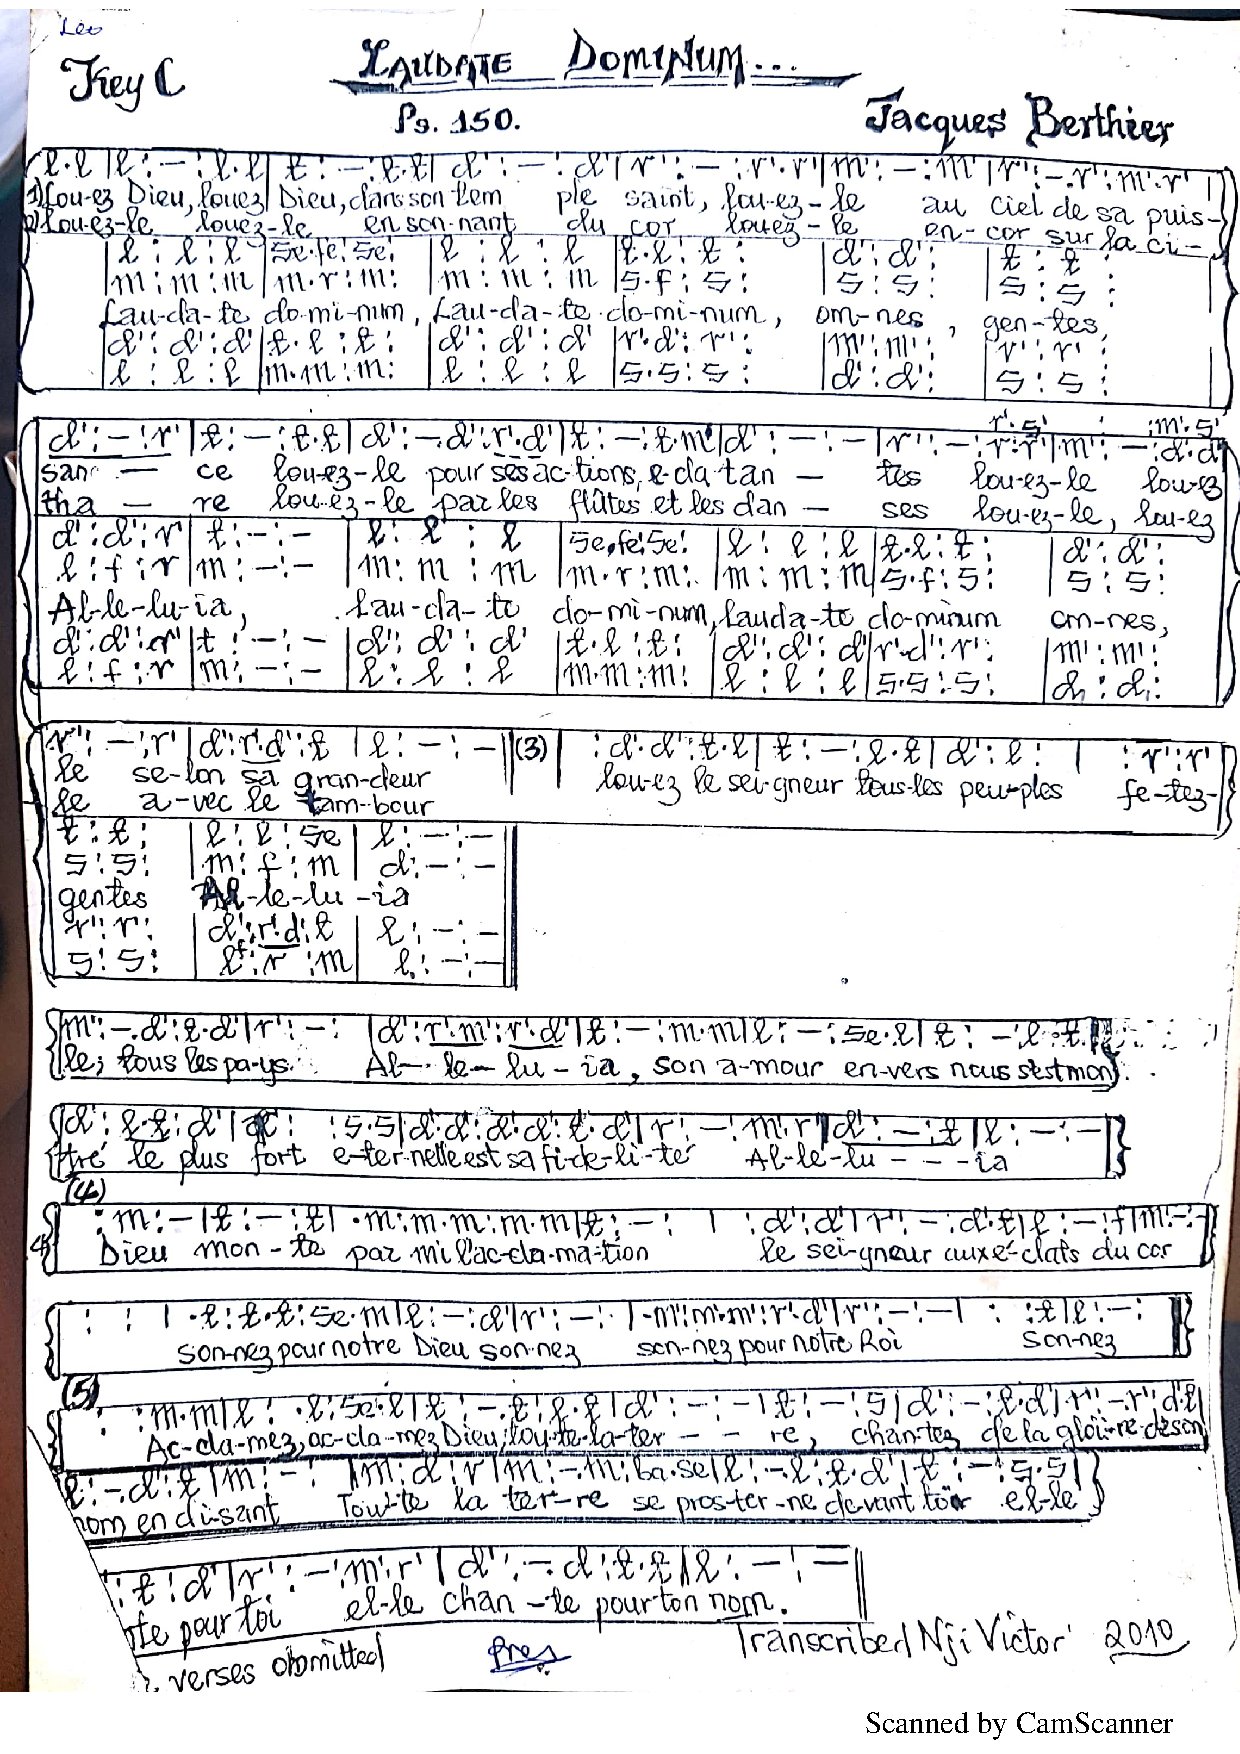 Leo
Key C
LAUDATE DOMINUM...
Ps. 150.
Jacques Berthier
l.l |l : – : l.l | t : – : t.t | d' : – : d' | r' : – : r'.r' | m' : – : m' | r' : – . r' : m'.r' |
1) Lou-ez Dieu, louez Dieu, dans son tem ple saint, lou-ez-le au ciel de sa puis-
2) Lou-ez-le louez-le en son-nant du cor louez-le en-cor sur la ci-
| l : l : l | se.fe : se : | l : l : l | t.l : t : | d' : d' : | t : t :
| m : m : m | m.r : m : | m : m : m | s.f : s : | s : s : | s : s :
Lau-da-te do-mi-num, Lau-da-te do-mi-num, om-nes, gen-tes,
| d' : d' : d' | t.l : t : | d' : d' : d' | r'.d' : r' : | m' : m' : | r' : r' :
| l : l : l | m.m : m : | l : l : l | s.s : s : | d' : d' : | s : s :
r'.s' : : m'.s'
d' : – : r' | t : – : t.t | d' : – . d' : r'.d' | t : – : t.m' | d' : – : – | r' : – : r'.r' | m' : – : d'.d'
san – ce lou-ez-le pour ses ac-tions, e-cla tan – tes lou-ez-le louez
tha – re lou-ez-le par les flûtes et les dan – ses lou-ez-le, lou-ez
d' : d' : r' | t : – : – | l : l : l | se.fe : se : | l : l : l | t.l : t : | d' : d' :
l : f : r | m : – : – | m : m : m | m.r : m : | m : m : m | s.f : s : | s : s :
Al-le-lu-ia, Lau-da-te do-mi-num, lauda-te do-minum om-nes,
d' : d' : r' | t : – : – | d' : d' : d' | t.l : t : | d' : d' : d' | r'.d' : r' : | m' : m' :
l : f : r | m : – : – | l : l : l | m.m : m : | l : l : l | s.s : s : | d, : d, :
r' : – : r' | d' : r'.d' : t | l : – : – || (3) | : d'.d' : t.l | t : – : l.t | d' : l : | : r' : r'
le se-lon sa gran-deur lou-ez le sei-gneur tous les peu-ples fe-tez-
le a-vec le tam-bour
t : t : | l : l : se | l : – : –
s : s : | m : f : m | d : – : –
gentes Al-le-lu-ia
r' : r' : | d' : r'.d' : t | l : – : –
s : s : | l : r : m | l, : – : –
m' : – . d' : t.d' | r' : – : | d' : r'.m' : r'.d' | t : – : m.m | l : – : se.l | t : – : l.t
le; tous les pa-ys. Al-le-lu-ia, son a-mour en-vers nous s'est mon
d' : l.t : d' | : s.s | d'.d' : d'.d' : t.d' | r' : – : m'.r' | d' : – : t | l : – : –
tré le plus fort e-ter-nelle est sa fi-de-li-te Al-le-lu – – – ia
(4)
: m : – | t : – : t | .m : m.m : m.m | t : – : | : d' : d' | r' : – : d'.t | l : – : f | m : – : –
Dieu mon-te par mi l'ac-cla-ma-tion le sei-gneur aux é-clats du cor
: : | .t : t.t : se.m | l : – : d' | r' : – : | .m' : m'.m' : r'.d' | r' : – : – | : : t | l : – :
son-nez pour notre Dieu son-nez son-nez pour notre Roi son-nez
(5)
: : m.m | l : .l : se.l | t : – . t : l.t | d' : – : – | t : – : s | d' : – : t.d' | r' : – . r' : d'.t |
Ac-cla-mez, ac-cla-mez Dieu, tou-te la ter – – re, chan-tez de la gloi-re de son
l : – . d' : t | m : – : | m : d : r | m : – . m : ba.se | l : – . l : t.d' | t : – : s.s |
nom en di-sant Tou-te la ter-re se pros-ter-ne devant toi el-le
: t : d' | r' : – : m'.r' | d' : – . d' : t.t | l : – : –
te pour toi el-le chan-te pour ton nom.
verses obmitted
Pres
Transcriber/ Nji Victor 2010
Scanned by CamScanner